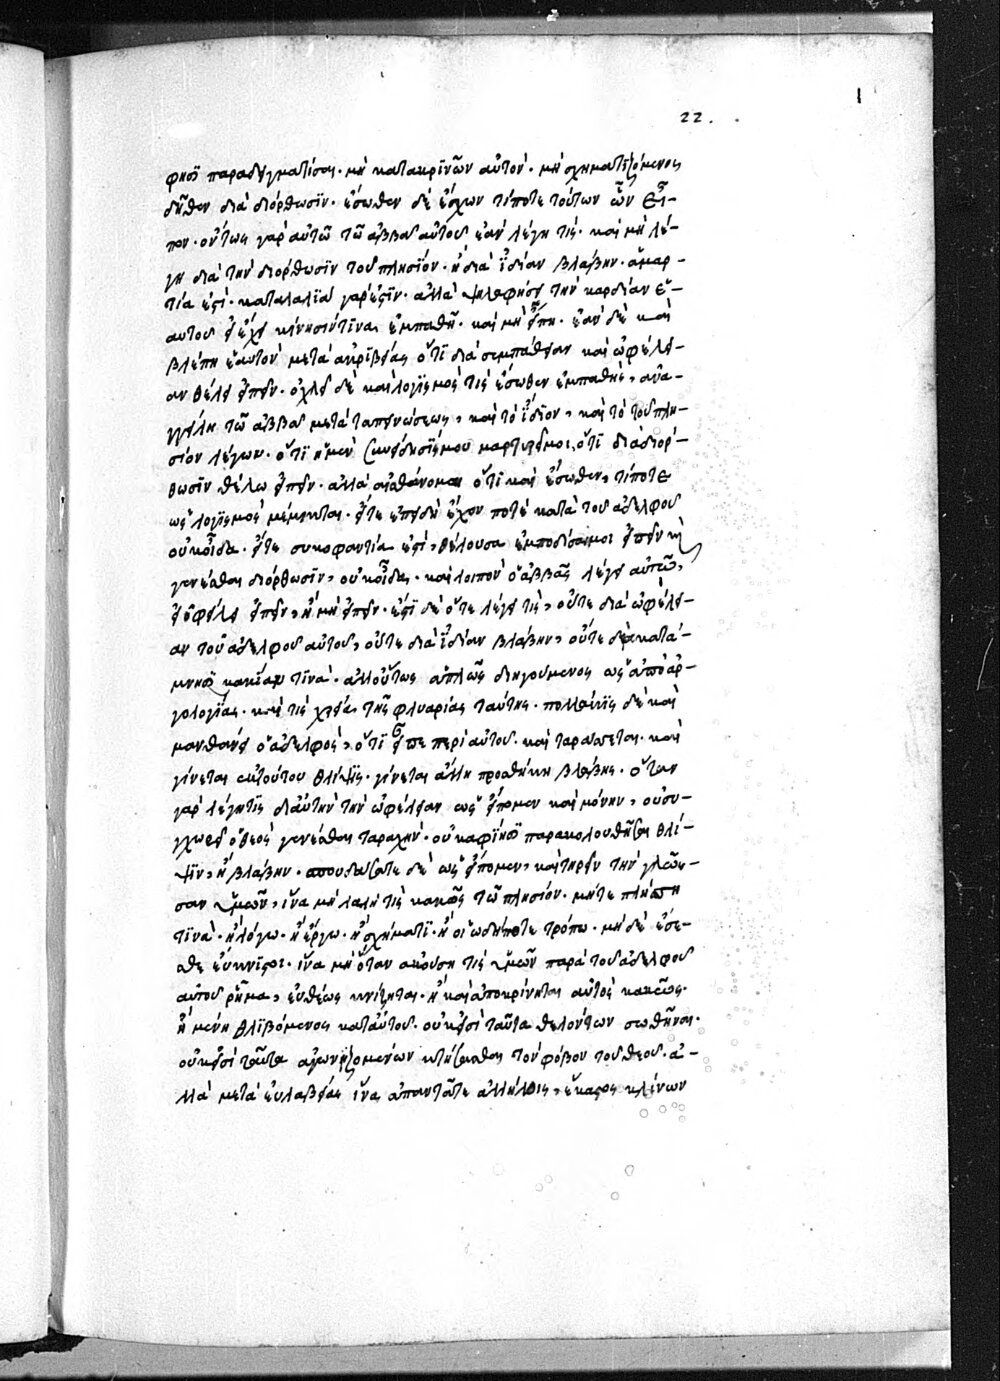 22.
φησϊ παραδειγματίσαι· μὴ κατακρϊνῶν αὐτόν· μὴ σχηματϊζόμενος
δῆθεν διὰ διόρθωσϊν· ἔσωθεν δὲ ἔχων τίποτε τούτων ὧν εἶ-
πον· οὕτως γὰρ αὐτῶ τῶ ἀββᾶ αὐτοῦ ἐὰν λέγη τίς· καὶ μὴ λέ-
γη διὰ τὴν διόρθωσϊν τοῦ πλησΐον· ἢ διὰ ἰδίαν βλάβην· ἁμαρ-
τία ἐστί· καταλαλϊὰ γάρ ἐστϊν· ἀλλὰ ψηλαφήσει τὴν καρδίαν ἑ-
αυτοῦ εἰ ἔχει κίνησίν τϊνα ἐμπαθῆ· καὶ μὴ εἴπη· ἐὰν δὲ καὶ
βλέπη ἑαυτὸν μετὰ ἀκρϊβείας ὅτϊ διὰ συμπάθειαν καὶ ὠφέλει-
αν θέλει εἰπεῖν· ὀχλεῖ δὲ καὶ λογϊσμός τις ἔσωθεν ἐμπαθὴς, ἀνα-
γγείλη τῶ ἀββᾶ μετὰ ταπεινώσεως, καὶ τὸ ἴδϊον, καὶ τὸ τοῦ πλη-
σίον λέγων· ὅτϊ ἡ μὲν συνείδησΐς μου μαρτυρεῖ μοι, ὅτϊ διὰ διόρ-
θωσϊν θέλω εἰπεῖν· ἀλλὰ αἰσθάνομαι ὅτϊ καὶ ἔσωθεν, τίποτε
ὡς λογϊσμὸς μέμικται· εἴτε ἐπειδὴ ἔχον ποτὲ κατὰ τοῦ ἀδελφοῦ
οὐκ οἶδα· εἴτε συκοφαντία ἐστὶ, θέλουσα ἐμποδίσαι μοι εἰπεῖν κὴ
γενέσθαι διόρθωσϊν, οὐκ οἶδα· καὶ λοιπὸν ὁ ἀββᾶς λέγει αὐτῶ,
εἰ ὀφείλει εἰπεῖν, ἢ μὴ εἰπεῖν· ἐστὶ δὲ ὅτε λέγει τὶς, οὔτε διὰ ὠφέλει-
αν τοῦ ἀδελφοῦ αὐτοῦ, οὔτε διὰ ἰδίαν βλάβην, οὔτε διὰ κατα-
μνησϊ κακίαν τϊνὰ· ἀλλ' οὕτως ἁπλῶς διηγούμενος ὡς ἀπὸ ἀρ-
γολογϊας· καὶ τίς χρεία τῆς φλυαρίας ταύτης· πολλάκϊς δὲ καὶ
μανθάνει ὁ ἀδελφὸς, ὅτϊ εἶπε περὶ αὐτοῦ· καὶ ταράσσεται· καὶ
γίνεται ἐκ τούτου θλίψϊς· γίνεται ἄλλη προσθήκη βλάβης· ὅταν
γὰρ λέγη τϊς δϊ αὐτὴν τὴν ὠφέλειαν ὡς εἴπομεν καὶ μόνην, οὐ συ-
γχωρεῖ ὁ θεὸς γενέσθαι ταραχὴν· οὐκ ἀφϊησϊ παρακολουθῆσαι θλί-
ψϊν, ἢ βλάβην· σπουδάσατε δὲ ὡς εἴπομεν, καὶ τηρεῖν τὴν γλῶσ-
σαν ὑμῶν, ἵνα μὴ λαλῆ τὶς κακῶς τῶ πλησίον· μήτε πλήξη
τϊνὰ· ἢ λόγω· ἢ ἔργω· ἢ σχήματϊ· ἢ οἱωδήποτε τρόπω· μὴ δὲ ἔσε-
σθε εὐκνϊστοι· ἵνα μὴ ὅταν ἀκούση τὶς ὑμῶν παρὰ τοῦ ἀδελφοῦ
αὐτοῦ ῥῆμα, εὐθέως κνίζηται· ἢ καὶ ἀποκρίνηται αὐτὸς κακῶς·
ἢ μένη θλϊβόμενος κατ' αὐτοῦ· οὐκ εἰσὶ ταῦτα θελόντων σωθῆναι·
οὐκ εἰσὶ ταῦτα ἀγωνιζομένων κτήσασθαι τὸν φόβον τοῦ θεοῦ· ἀ-
λλὰ μετὰ εὐλαβείας ἵνα ἀπαντᾶτε ἀλλήλοις, ἕκαστος κλίνων